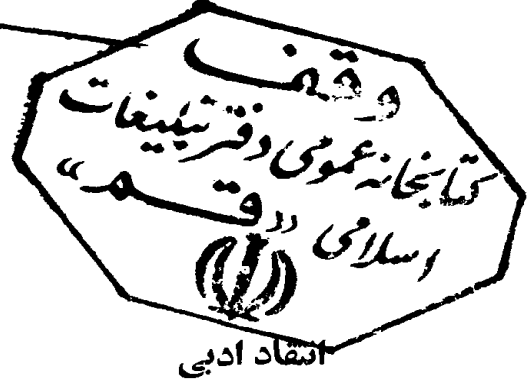 وقف
کتابخانه عمومی دفتر تبلیغات
اسلامی «قم»
انتقاد ادبی